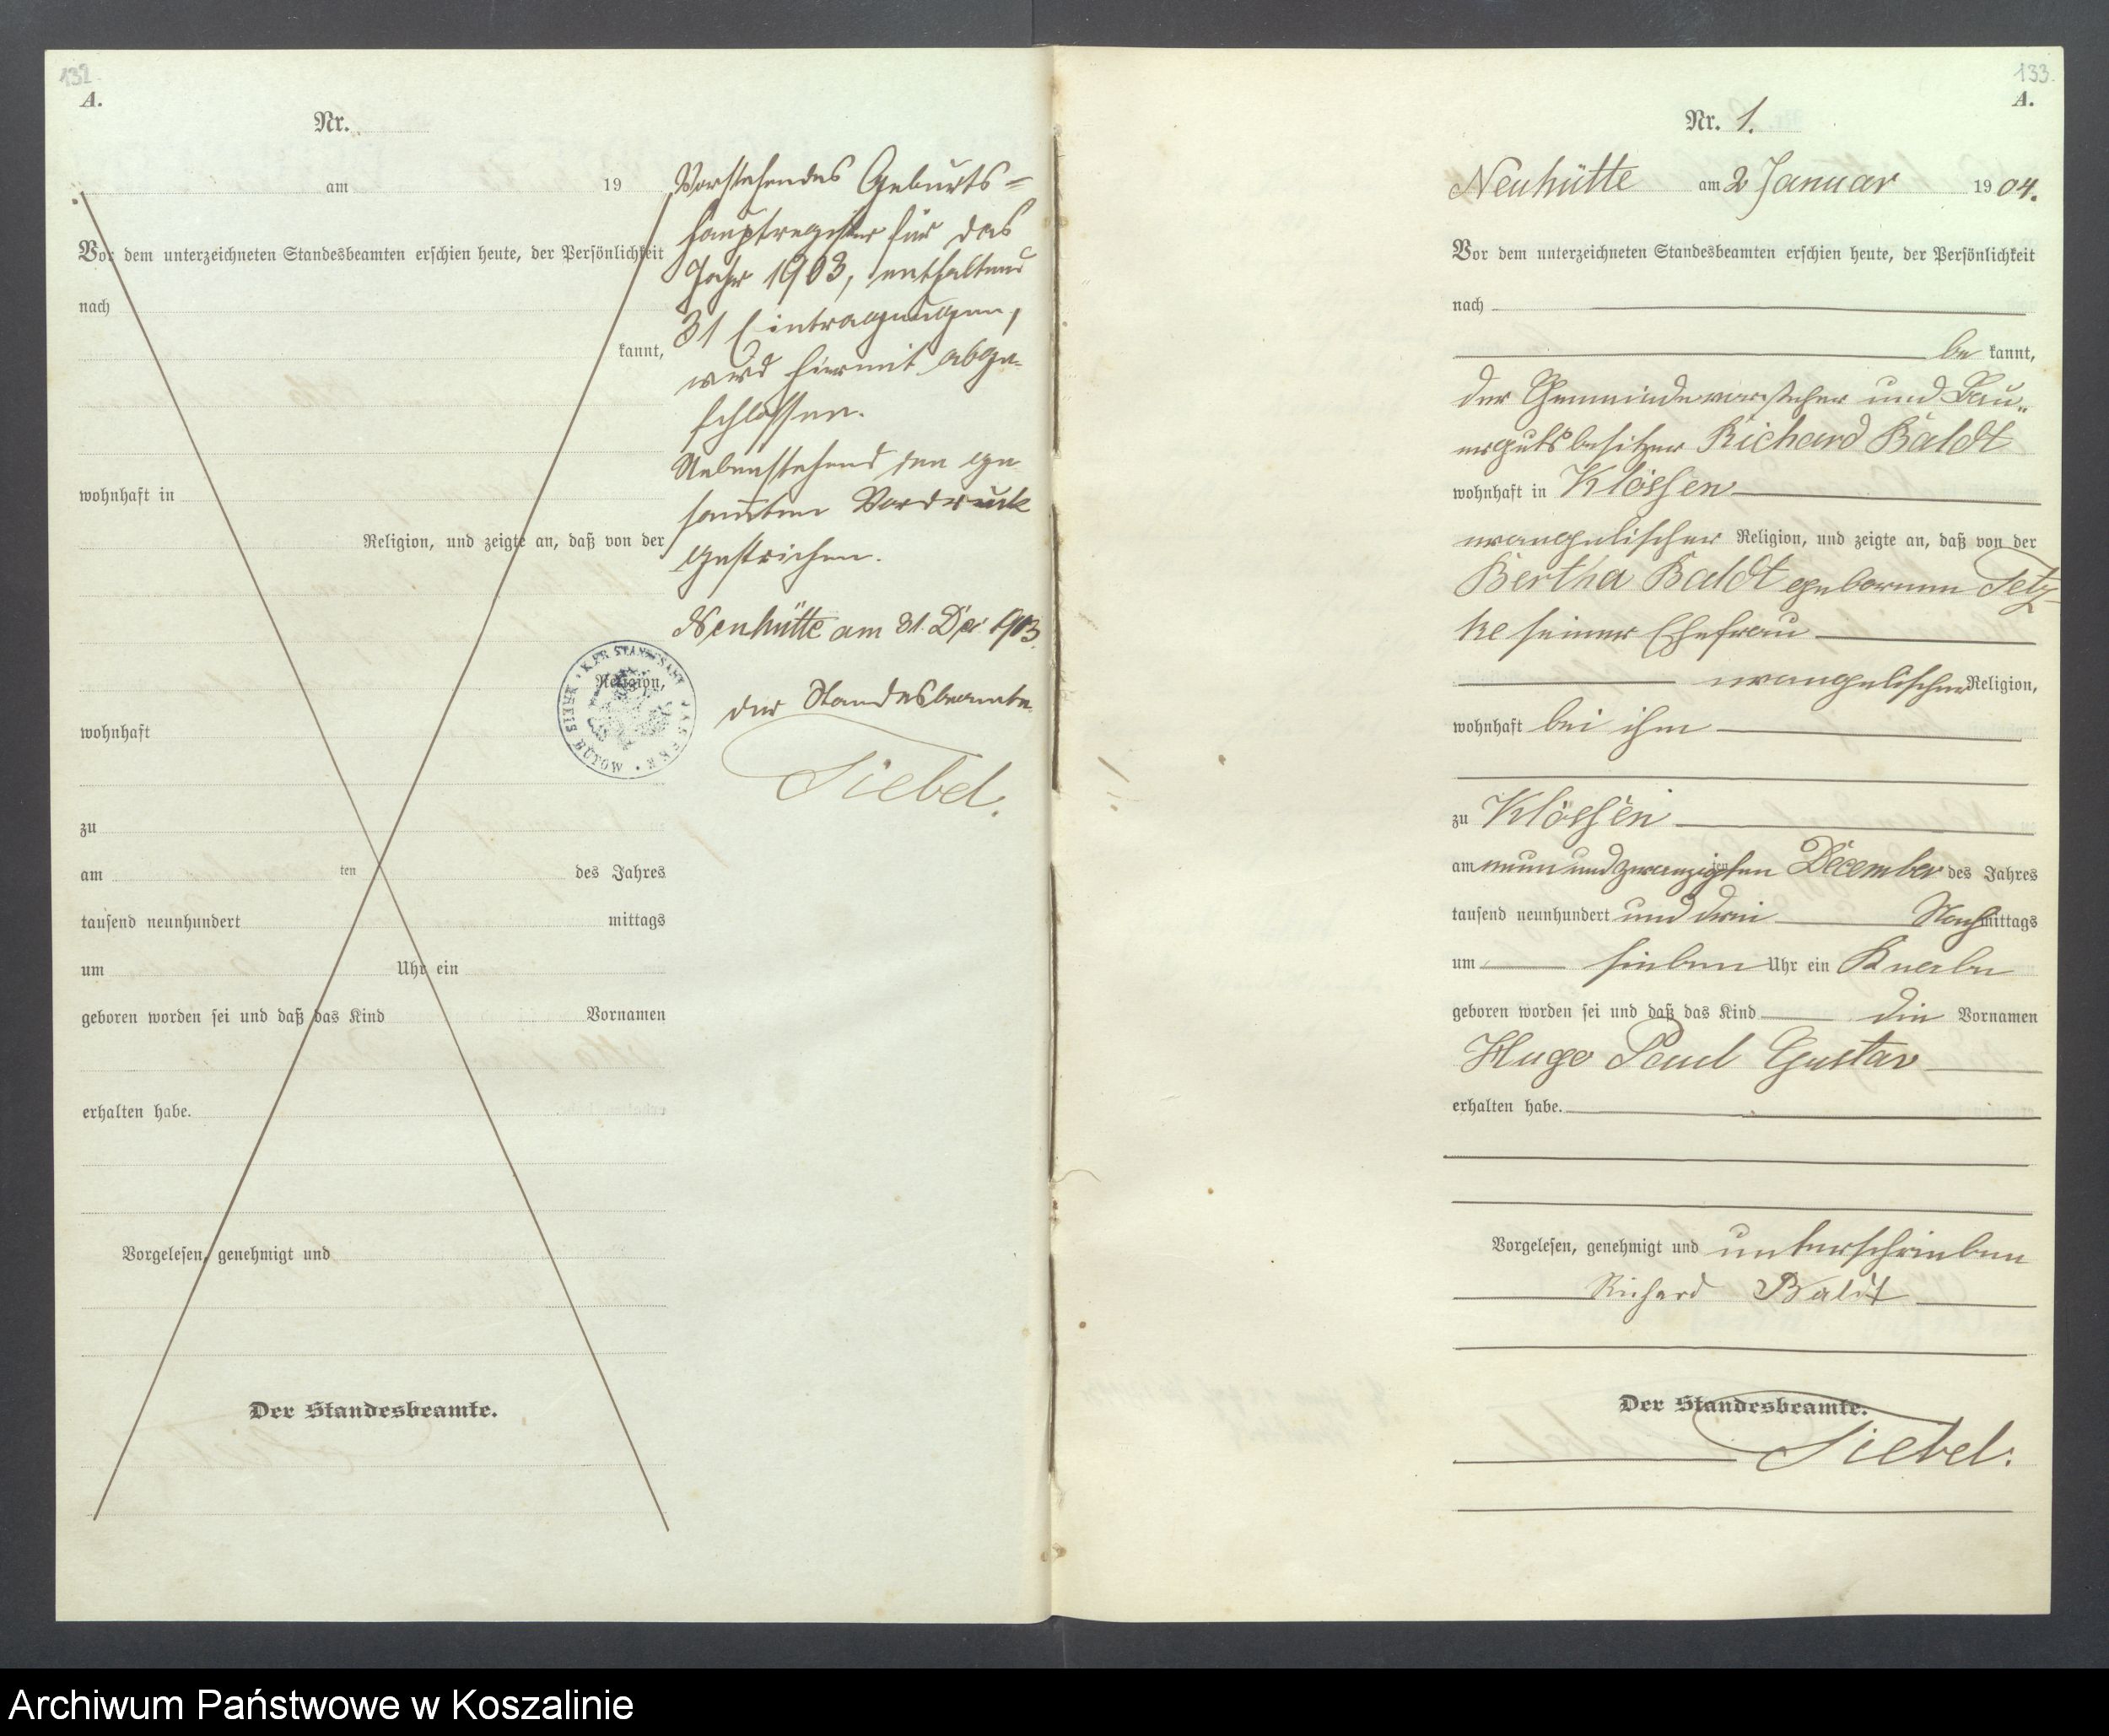 132.
A.
Nr.
am 19
Vor dem unterzeichneten Standesbeamten erschien heute, der Persönlichkeit
nach
kannt,
wohnhaft in
Religion, und zeigte an, daß von der
Religion,
wohnhaft
zu
am ten des Jahres
tausend neunhundert mittags
um Uhr ein
geboren worden sei und daß das Kind Vornamen
erhalten habe.
Vorgelesen, genehmigt und
Der Standesbeamte.
Vorstehendes Geburts=
hauptregister für das
Jahr 1903, enthaltend
31 Eintragungen,
wird hiermit abge-
schlossen.
Nebenstehend den ge
samten Vordruck
gestrichen.
Neuhütte am 31. Dez. 1903.
Der Standesbeamte.
Siebel.
KREIS BÜTOW
133.
A.
Nr. 1.
Neuhütte am 2 Januar 1904.
Vor dem unterzeichneten Standesbeamten erschien heute, der Persönlichkeit
nach
be kannt,
der Gemeindevorsteher und Bau„
ergutsbesitzer Richard Baldt
wohnhaft in Klössen
evangelischer Religion, und zeigte an, daß von der
Bertha Baldt geborenen Tetz-
ke seiner Ehefrau
evangelischer Religion,
wohnhaft bei ihm
zu Klössen
am neunundzwanzigsten December des Jahres
tausend neunhundert und drei Nachmittags
um sieben Uhr ein Knabe
geboren worden sei und daß das Kind die Vornamen
Hugo Paul Gustav
erhalten habe.
Vorgelesen, genehmigt und unterschrieben
Richard Baldt
Der Standesbeamte.
Siebel.
Archiwum Państwowe w Koszalinie